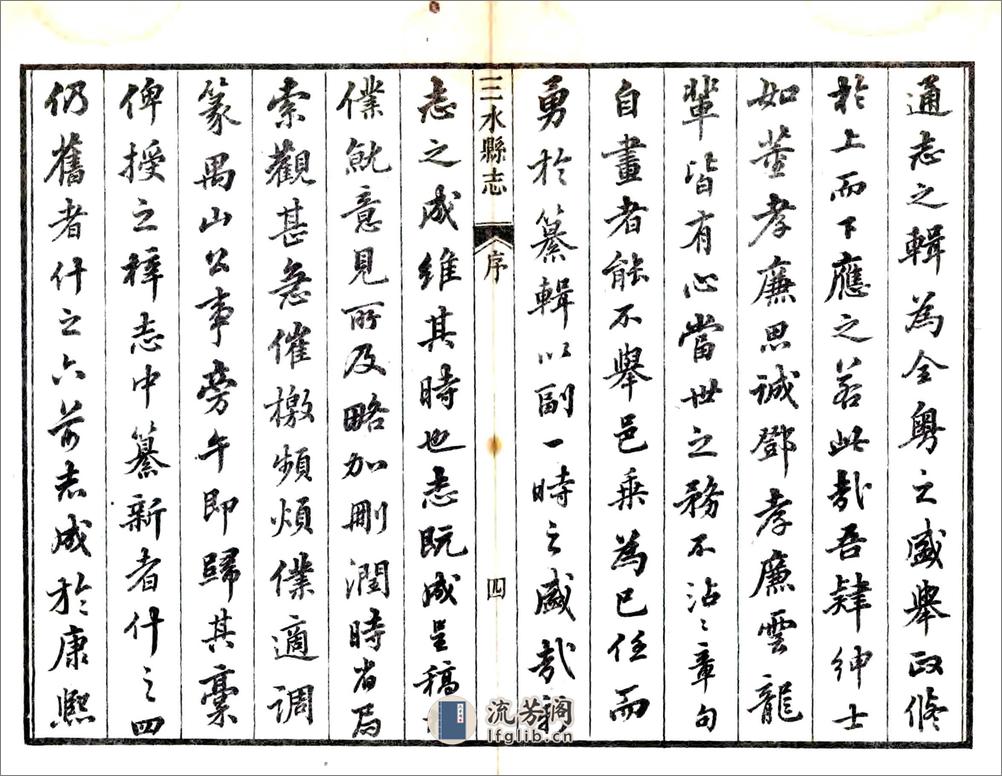 通志之輯為全粵之盛舉政脩
於上而下應之若此哉吾肄紳士
如董孝廉思誠鄧孝廉雲龍
輩皆有心當世之務不沾〻章句
自畫者能不舉邑乘為己任而
勇於纂輯以副一時之盛哉
三水縣志
序
四
志之成維其時也志既成呈稿
僕就意見所及略加刪潤時省局
索觀甚急催檄頻煩僕適調
篆禺山公事旁午即歸其稾
俾授之梓志中纂新者什之四
仍舊者什之六前志成於康熙
流芳阁
lfglib.cn